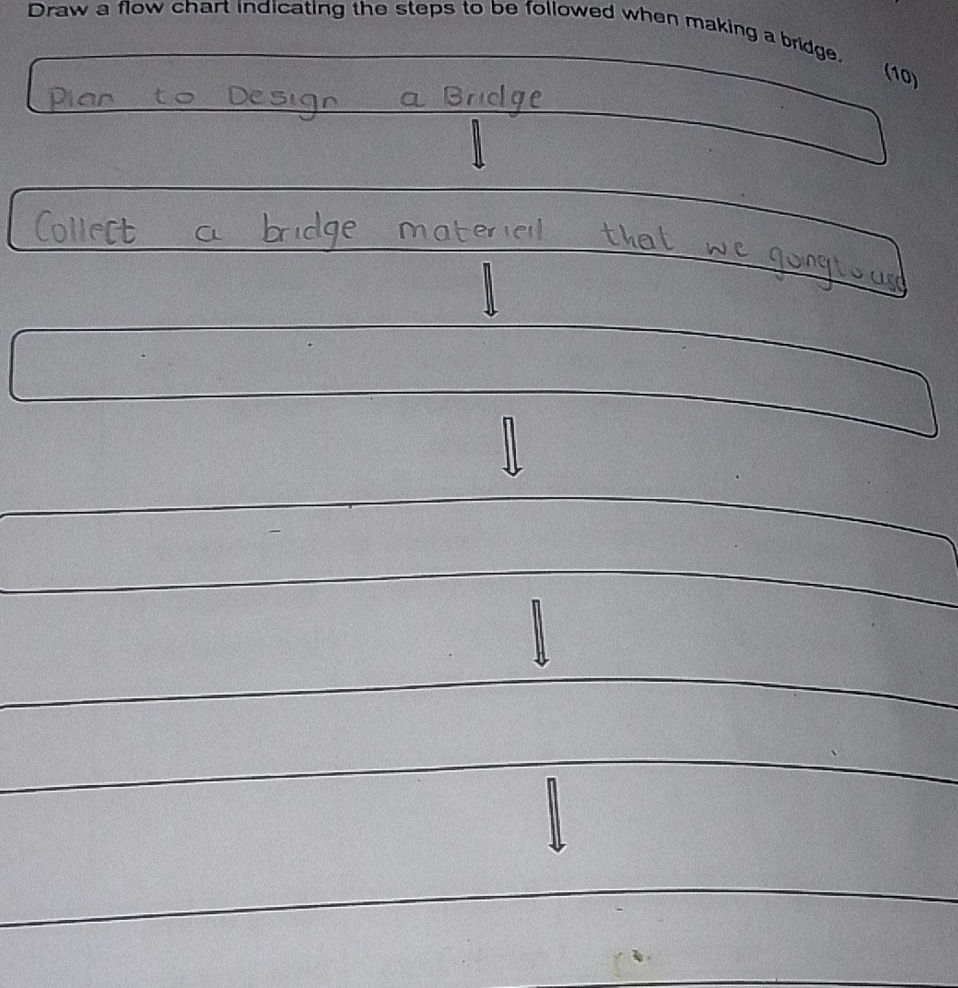 Draw a flow chart indicating the steps to be followed when making a bridge.
(10)
Plan to Design a Bridge
Collect a bridge material that we gongtouse